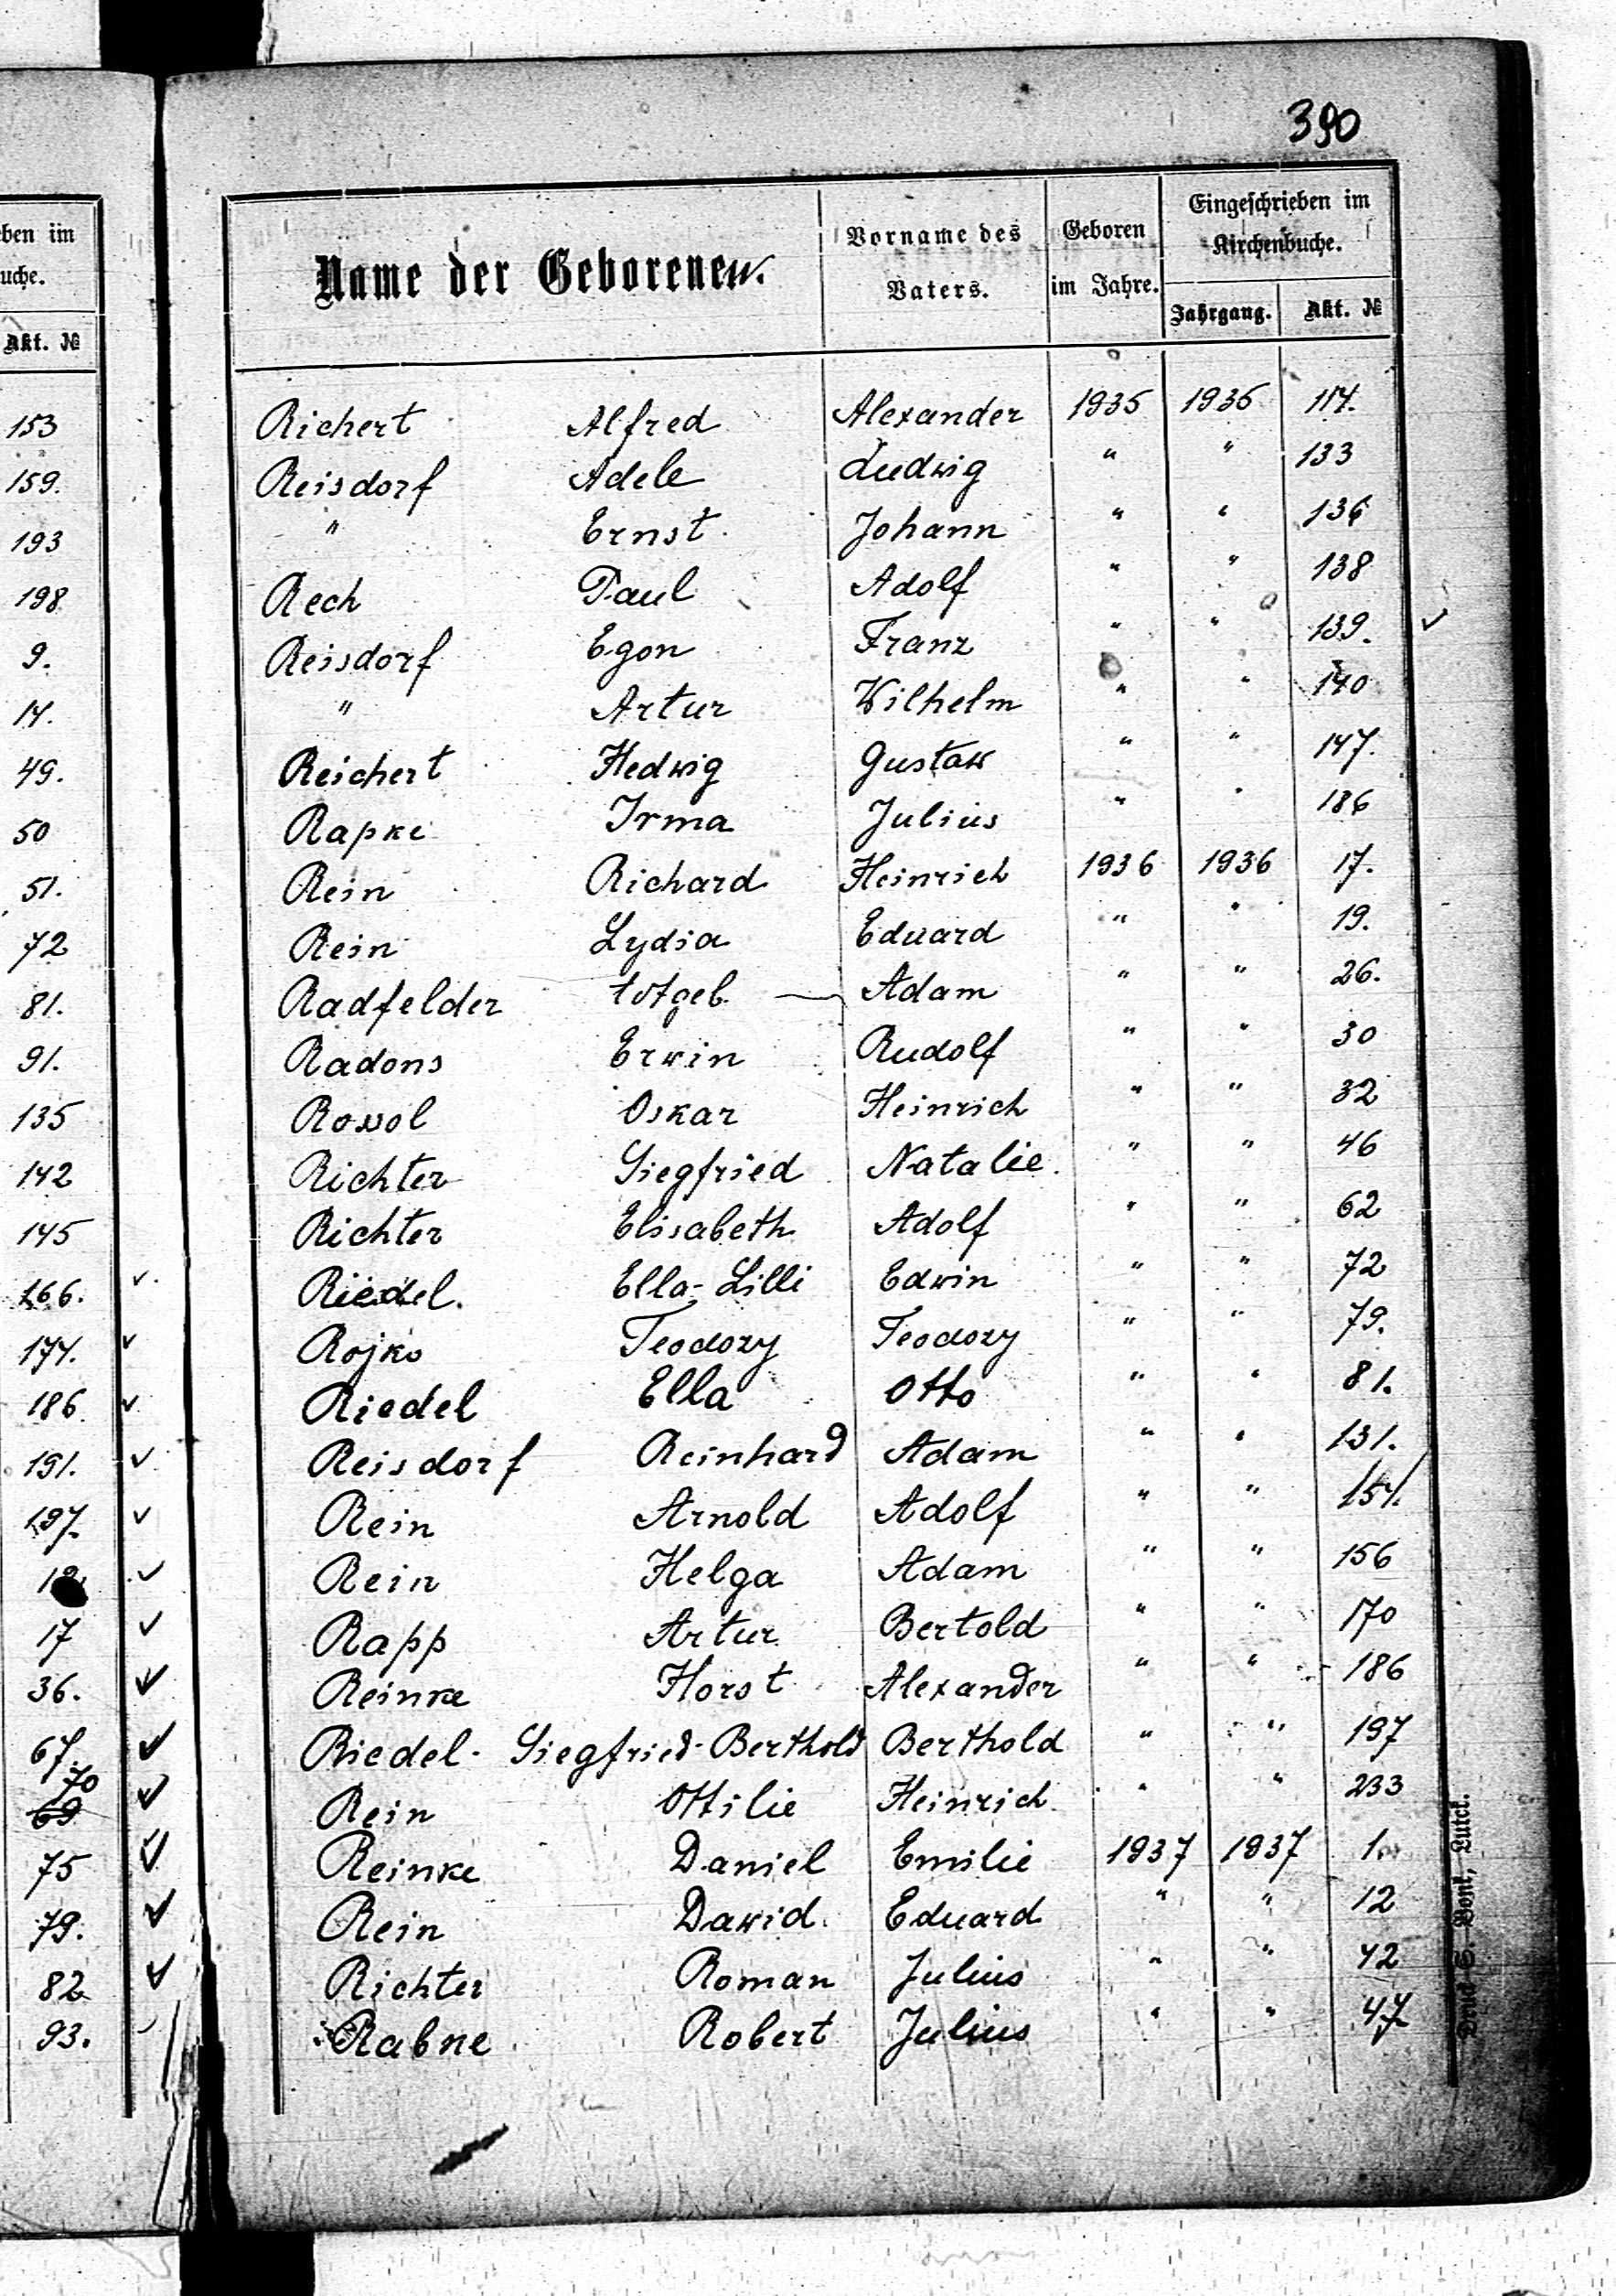 390
eben im
uche.
Akt. №
153
159.
193
198
9.
14.
49.
50
51.
72
81.
91.
135
142
145
166. v.
174. v
186. v
191. v
197. v
v
17 v
36. v
67. v
70
69 v
75 v
79. v
82 v
93.
Name der Geborenen.
Vorname des Vaters.
Geboren im Jahre.
Eingeschrieben im Kirchenbuche.
Jahrgang.
Akt. №
Richert Alfred Alexander 1935 1935 114.
Reisdorf Adele Ludwig " " 133
" Ernst Johann " " 136
Rech Paul Adolf " " 138
Reisdorf Egon Franz " " 139. v
" Artur Wilhelm " " 140
Reichert Hedwig Gustaw " " 147.
Rapke Irma Julius " " 186
Rein Richard Heinrich 1936 1936 17.
Rein Lydia Eduard " " 19.
Radfelder totgeb. — Adam " " 26.
Radons Erwin Rudolf " " 30
Rossol Oskar Heinrich " " 32
Richter Siegfried Natalie " " 46
Richter Elisabeth Adolf " " 62
Riedel. Ella-Lilli Edwin " " 72
Rojko Teodozy Teodozy " " 79.
Riedel Ella Otto " " 81.
Reisdorf Reinhard Adam " " 131.
Rein Arnold Adolf " "
Rein Helga Adam " " 156
Rapp Artur Bertold " " 170
Reinke Horst Alexander " " 186
Riedel Siegfried-Berthold Berthold " " 197
Rein Ottilie Heinrich " " 233
Reinke Daniel Emilie 1937 1937 1.
Rein Dawid Eduard " " 12
Richter Roman Julius " " 42
Rabke Robert Julius " " 47
Druck S. Bont, Luck.